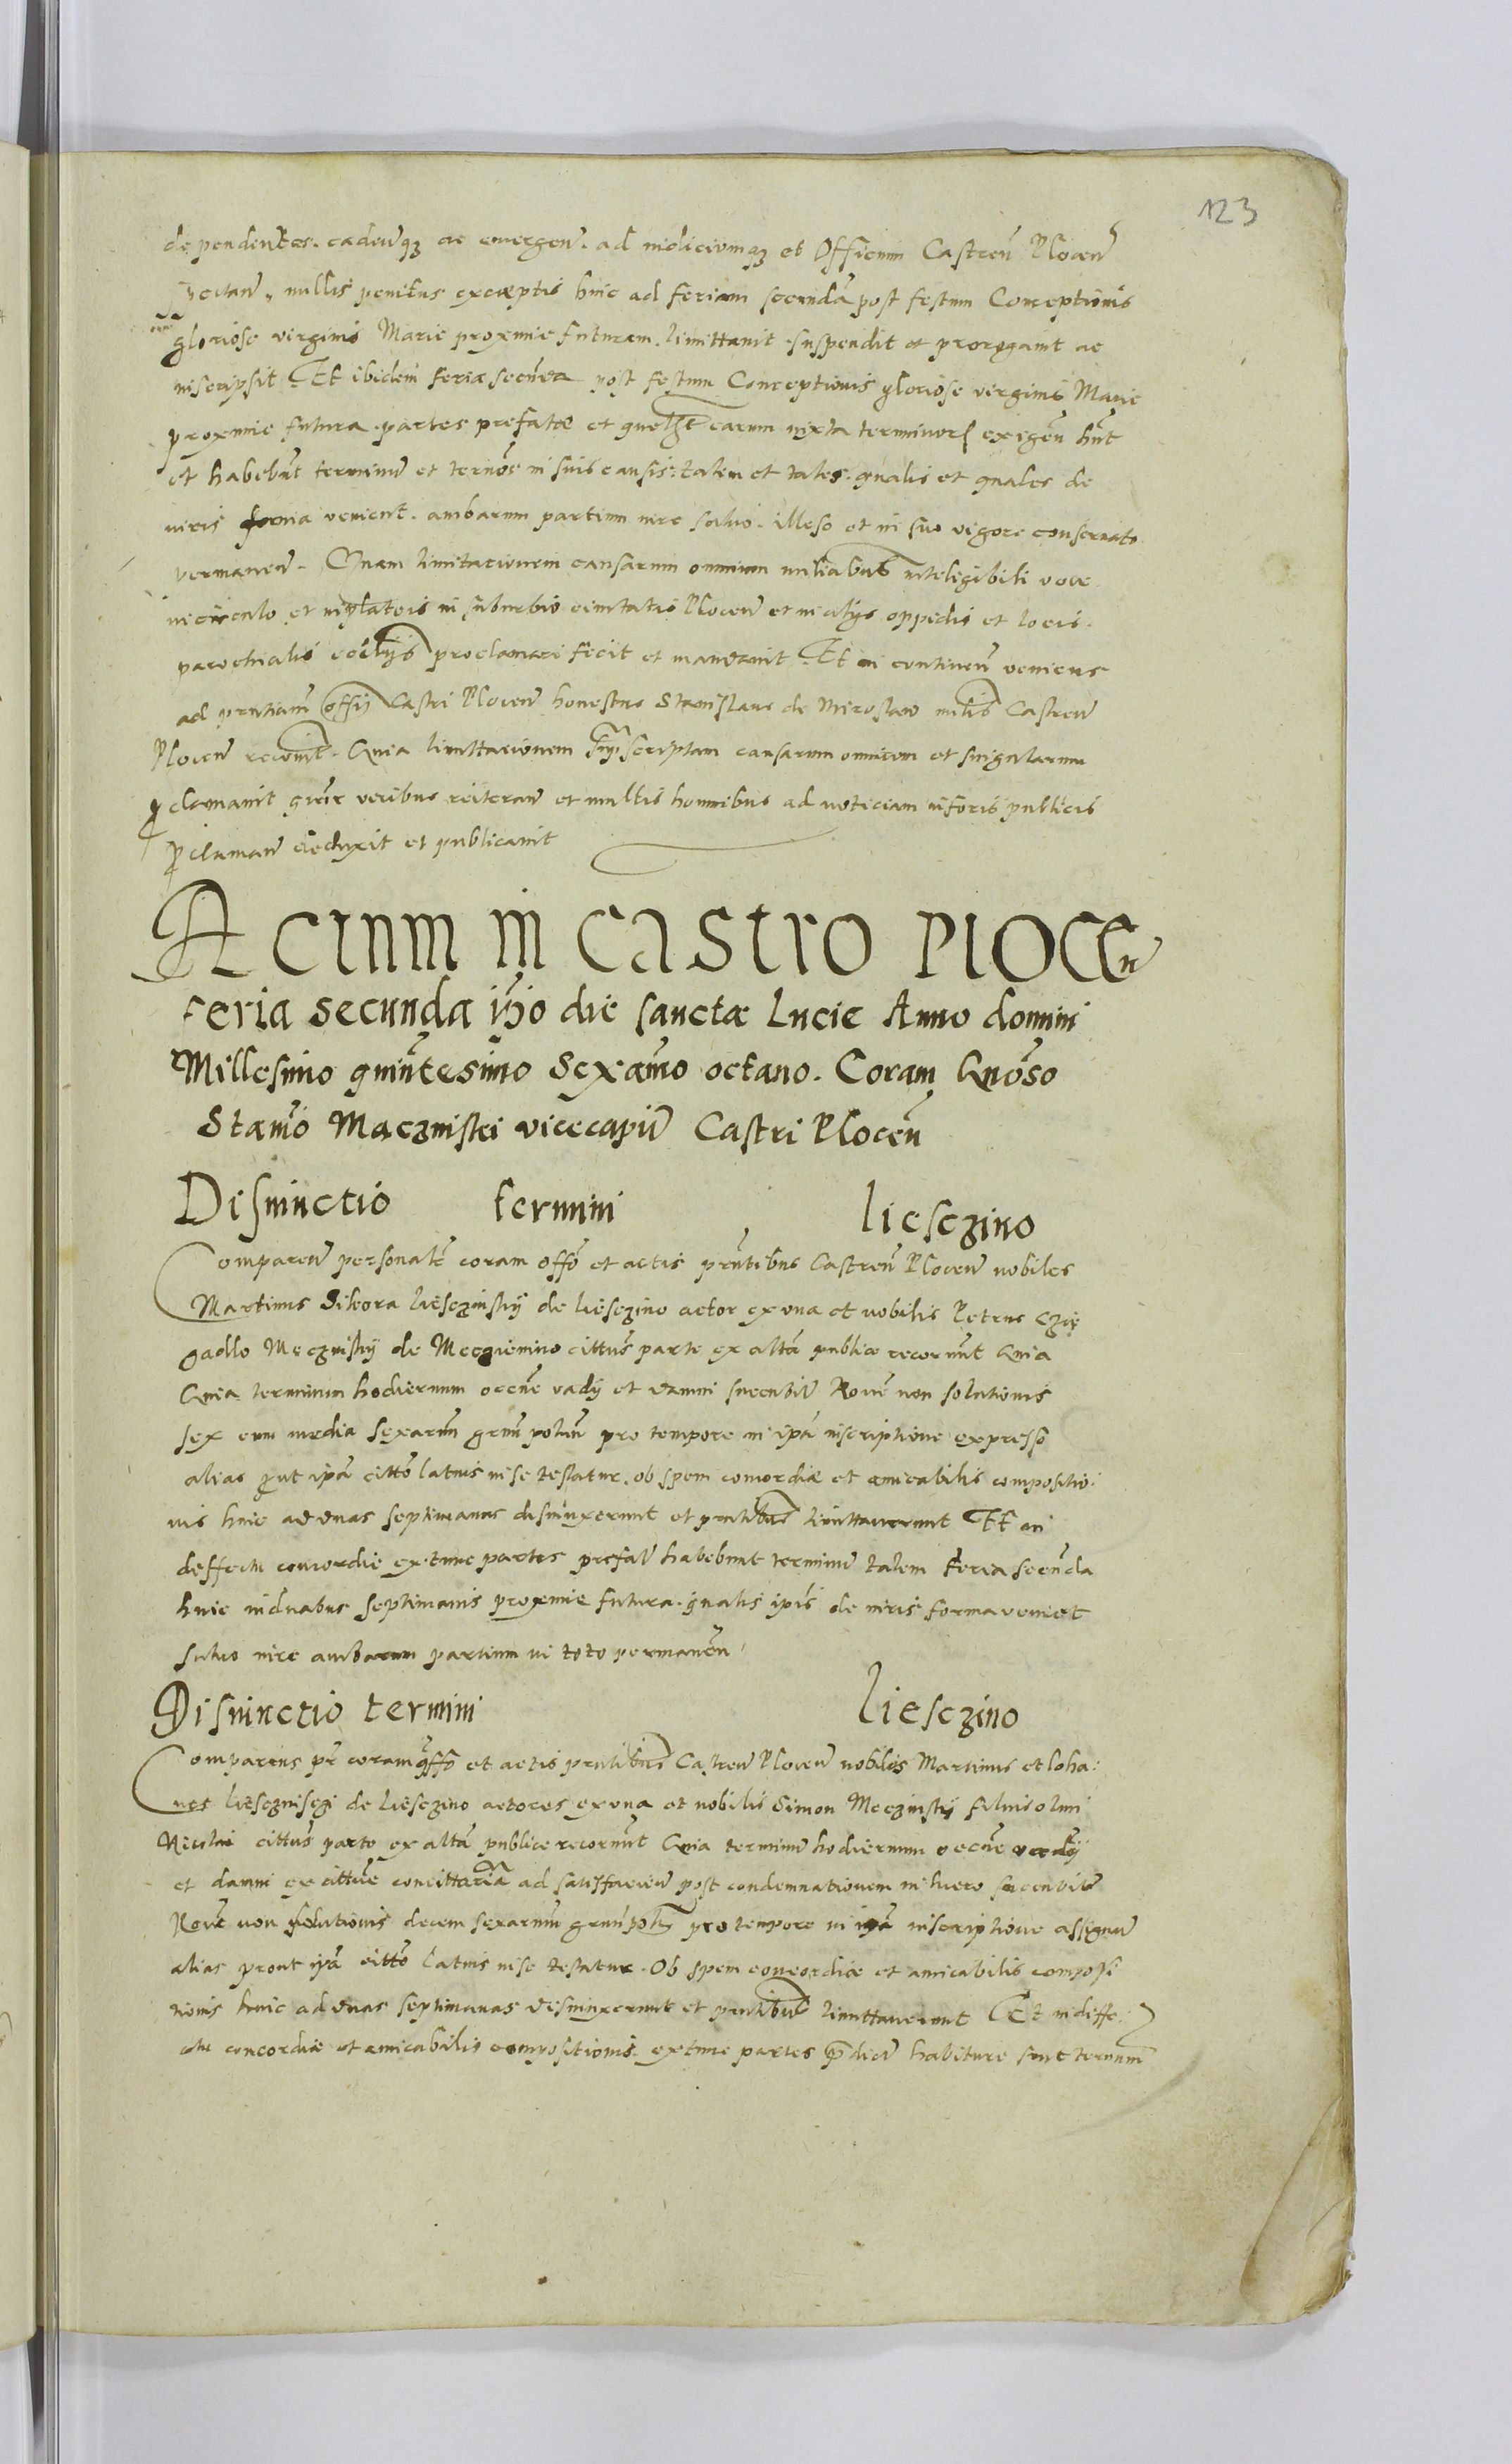 123
dependentes. cadenq3 ac emergen. ad iudiciumq3 et Officium Castren Plocen
spectan, nullis penitus exceptis hinc ad feriam secundã post festum Conceptionis
gloriose virginis Marie proxime futuram. limittauit suspendit et prorogauit ac
inscripsit Et ibidem feria secunda post festum Conceptionis gloriose virginis Marie
proxime futura partes prefatæ et quelibet earum iuxta terminor exigen hnt
et habebnt terminũ et termõs in suis causis: talem et tales. qualis et quales de
iuris forma venient. ambarum partium iure saluo. illeso et in suo vigore conseruato
permanen. Quam limitacionem causarum omnium intelegibili voce
in circulo et in plateis in suburbio ciuitatis Plocen et in alijs oppidis et locis.
parochialis ecclijs proclamari fecit et mandauit Et in continen veniens
ad pntiam offij Castri Plocen honestus Stanislaus de Miroslaw mlis Castren
Plocen recouit. Quia limittacionem scriptam causarum omnium et singularum
pclamauit vocibus reiteran et multis hominibus ad noticiam in foris publicis
pclaman deduxit et publicauit
Actum in Castro Plocen
feria secunda ipo die sanctæ Lucie Anno domini
Millesimo quintesimo Sexamo octauo. Coram Gnoso
Stanõ Maczinski vicecapiũ Castri Plocen
Disiunctio termini Liesczino
Comparen personalr coram offo et actis pntibus Castren Plocen nobiles
Martinus Sikora Liesczinskij de Liesczino actor ex una et nobilis Petrus Czię
gadlo Męczinskij de Meczienino cittus parte ex altã publice recornnt Quia
Quia terminum hodiernum occne vadij et damni succubit Rone non solutionis
sex cum media sexarum grum poln pro tempore in ipã inscriptione expresso
alias put ipã citto latius in se testatur. ob spem concordiæ et amicabilis compositio:
nis hinc ad duas septimanas disiunxerunt et pntibus limittauerunt Et in
deffectu concordie ex tunc partes prefat habebunt terminũ talem Feria secunda
hinc in duabus septimanis proxime futura. qualis ipis de iuris forma veniet
saluo iure ambarum partium in toto permanen
Disiunctio termini Liesczino
Comparens pr coram offo et actis pntibus Castren Plocen nobiles Martinus et Ioha:
nes Liesczinsczi de Liesczino actores ex una et nobilis Simon Meczinskij filius olim
Nicolai cittus parte ex altã publice recornnt Quia terminũ hodiernum occne vadij
et damni ex cittone concittaria ad satisfacien post condemnationem in lucro succubit
Rone non solutionis decem sexarum grum pol pro tempore in ipã inscriptione assignat
alias prout ipã citto latius in se testatur. Ob spem concordiæ et amicabilis composi
tionis hinc ad duas septimanas disiunxerunt et pntibus limittauerunt Et in deffe:
ctu concordiæ et amicabilis compositionis. ex tunc partes pdict habiture sunt terminũ